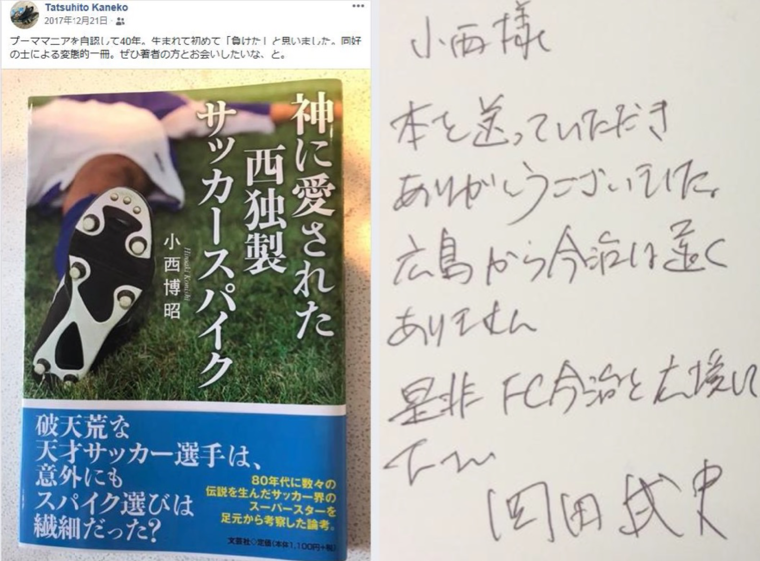 Tatsuhito Kaneko
2017年12月21日
プーママニアを自認して40年。生まれて初めて「負けた」と思いました。同好
の士による変態的一冊。ぜひ著者の方とお会いしたいな、と。
神に愛された
西独製
サッカースパイク
小西博昭
Hiroaki Konishi
破天荒な
天才サッカー選手は、
意外にも
スパイク選びは
繊細だった?
80年代に数々の
伝説を生んだサッカー界の
スーパースターを
足元から考察した論考。
文芸社◎定価(本体1,100円+税)
小西様
本を送っていただき
ありがとうございました。
広島から今治は遠く
ありません
是非FC今治を応援して
下さい
岡田武史